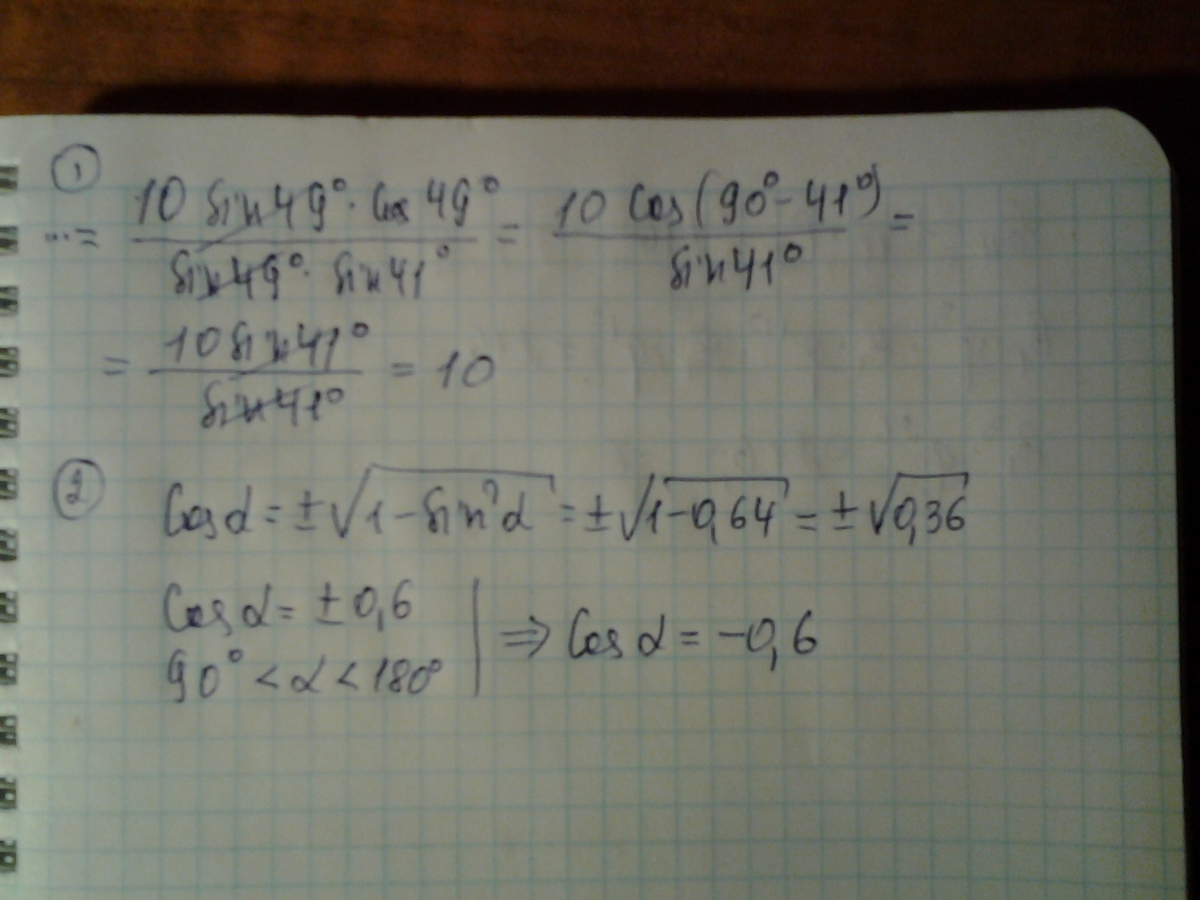 ①
...= 10 sin49°·cos49° / sin49°·sin41° = 10 cos(90°-41°) / sin41° =
= 10 sin41° / sin41° = 10
②
cosα = ±√1-sin²α = ±√1-0,64 = ±√0,36
cosα = ±0,6
90° < α < 180° | ⇒ cosα = -0,6